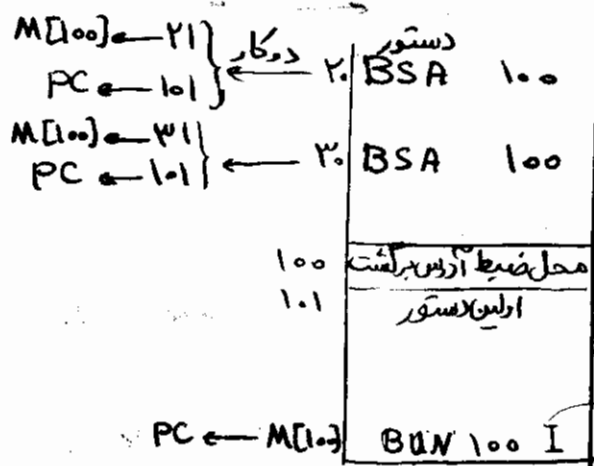 M[۱۰۰] ← ۲۱
دستور
PC ← ۱۰۱
دوکار
۲۰ BSA ۱۰۰
M[۱۰۰] ← ۳۱
PC ← ۱۰۱
۳۰ BSA ۱۰۰
۱۰۰ محل ضبط آدرس برگشت
۱۰۱ اولین دستور
PC ← M[۱۰۰] BUN ۱۰۰ I